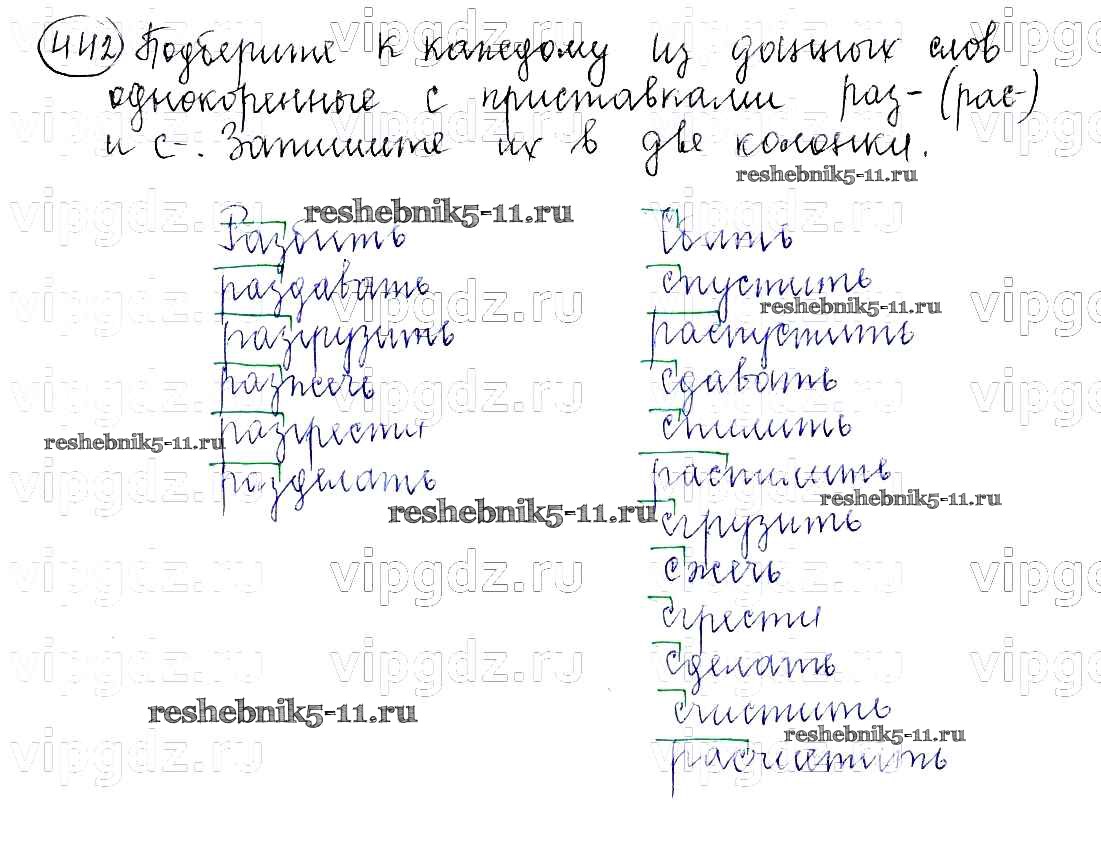 442 Подберите к каждому из данных слов
однокоренные с приставками раз- (рас-)
и с-. Запишите их в две колонки.
reshebnik5-11.ru
vipgdz.ru
reshebnik5-11.ru
Разбить
раздавать
разгрузить
разжечь
разгрести
разделать
Сбить
спустить
reshebnik5-11.ru
распустить
сдавать
спилить
распилить
reshebnik5-11.ru
сгрузить
сжечь
сгрести
сделать
счистить
reshebnik5-11.ru
расчистить
reshebnik5-11.ru
reshebnik5-11.ru
reshebnik5-11.ru
vipgdz.ru
vipgdz.ru
vipgdz.ru
vipgdz.ru
vipgdz.ru
vipgdz.ru